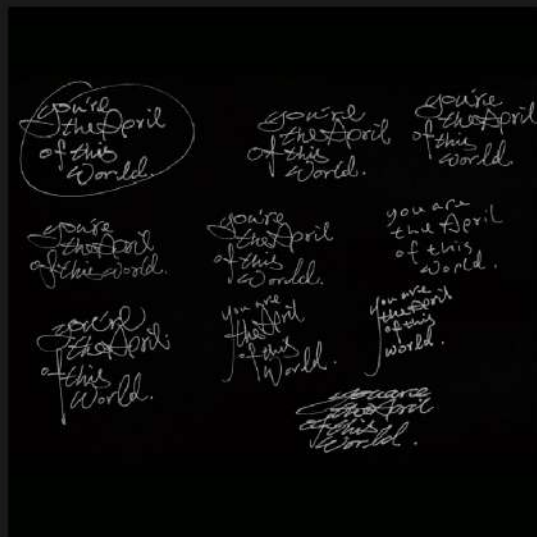 you're
the April
of this
World.
you're
the April
of this
World.
you're
the April
of this
World.
you're
the April
of this World.
you're
the April
of this
World.
you are
the April
of this
World.
you're
the April
of this
World.
you are
the April
of this
World.
you are
the April
of this
world.
you are
the April
of this
World.